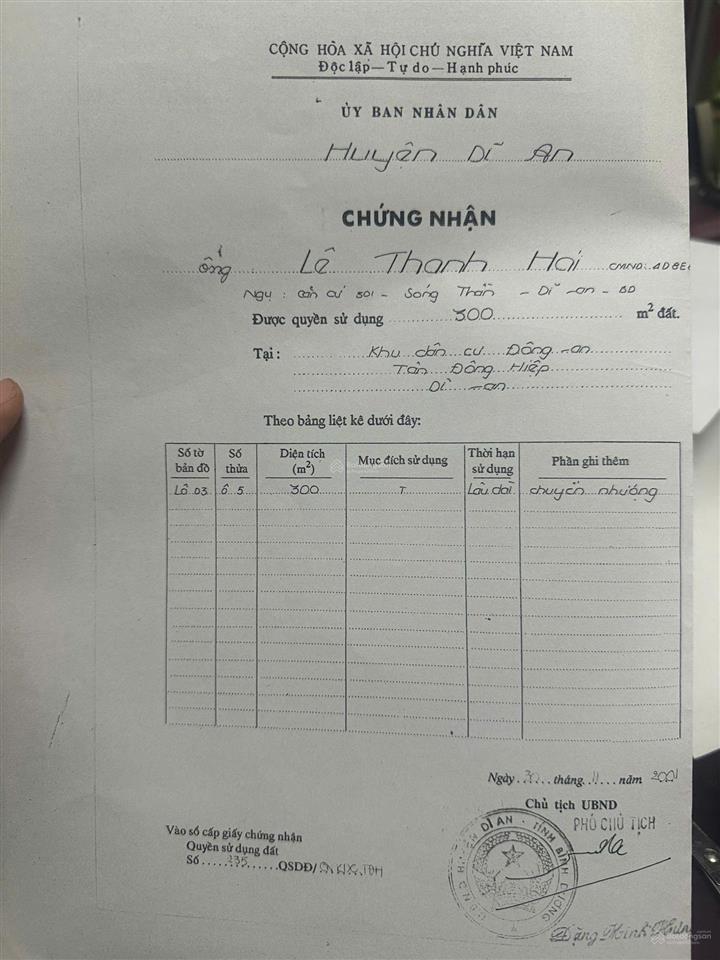 CỘNG HÒA XÃ HỘI CHỦ NGHĨA VIỆT NAM
Độc lập—Tự do—Hạnh phúc
ỦY BAN NHÂN DÂN
Huyện Dĩ An
CHỨNG NHẬN
ông Lê Thanh Hải CMND:
Ngụ : Căn cứ 301 - Sóng Thần - Dĩ An - BD
Được quyền sử dụng 300 m² đất.
Tại : Khu dân cư Đông An
Tân Đông Hiệp
Dĩ An
Theo bảng liệt kê dưới đây:
Số tờ bản đồ Số thửa Diện tích (m²) Mục đích sử dụng Thời hạn sử dụng Phần ghi thêm
Lô 03 ô 5 300 T Lâu dài chuyển nhượng
Ngày 30 tháng 11 năm 2001
Chủ tịch UBND
PHÓ CHỦ TỊCH
Vào sổ cấp giấy chứng nhận
Quyền sử dụng đất
Số 235 QSDĐ/
U.B.N.D HUYỆN DĨ AN - TỈNH BÌNH DƯƠNG
Đặng Minh